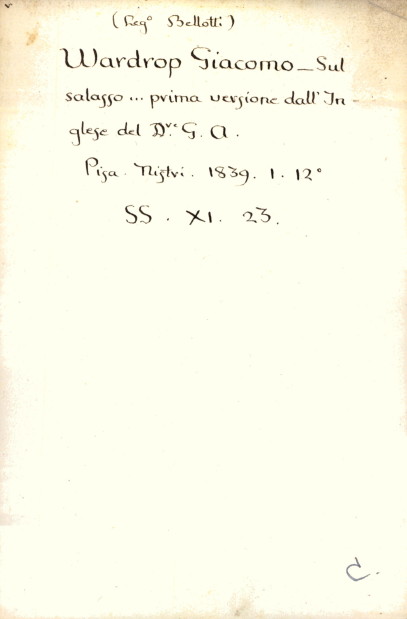 (Leg° Bellotti)
Wardrop Giacomo _ Sul
salasso ... prima versione dall' In-
glese del D.re G. A.
Pisa. Nistri. 1839. 1. 12°
SS. XI. 23.
C.